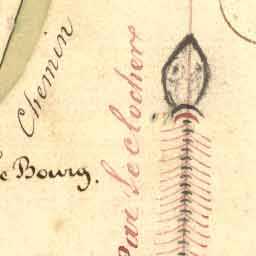 Chemin
le Bourg.
Par le clocher